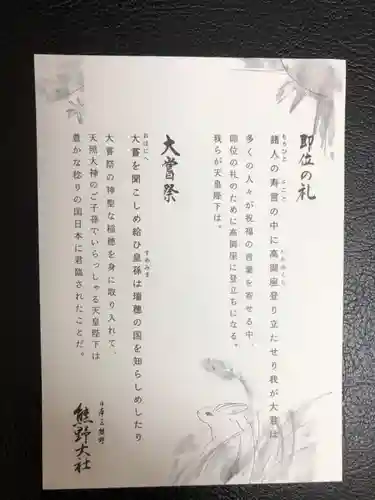 即位の礼
諸人の寿言の中に高御座登り立たせり我が大君は
多くの人々が祝福の言葉を寄せる中、
即位の礼のために高御座に登立ちになる。
我らが天皇陛下は。
大嘗祭
大嘗を聞こしめ給ひ皇孫は瑞穂の国を知らしめしたり
大嘗祭の神聖な稲穂を身に取り入れて、
天照大神のご子孫でいらっしゃる天皇陛下は
豊かな稔りの国日本に君臨されたことだ。
日本三熊野
熊野大社